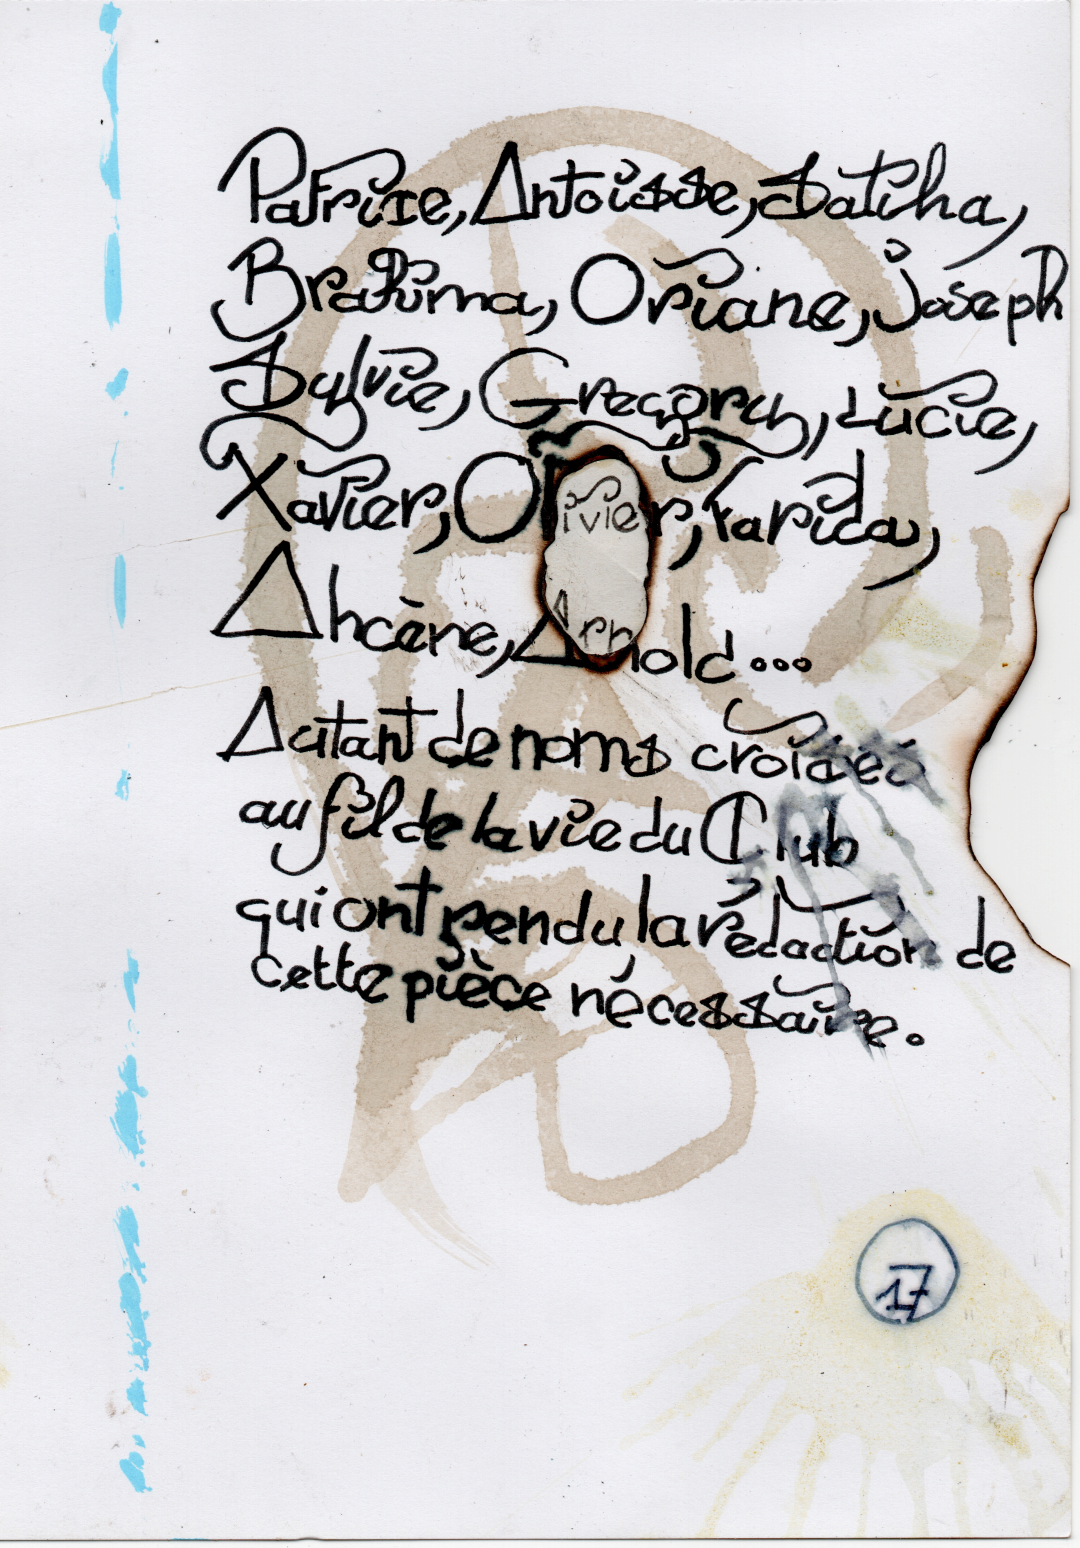 Patrice, Antoisse, Satiha,
Brahima, Oriane, joseph
Sylvie, Gregory, Lucie,
Xavier, Olivier, Farida,
Ahcène, Arnold...
Autant de noms croisés
au fil de la vie du Club
qui ont rendu la rédaction de
cette pièce nécessaire.
17